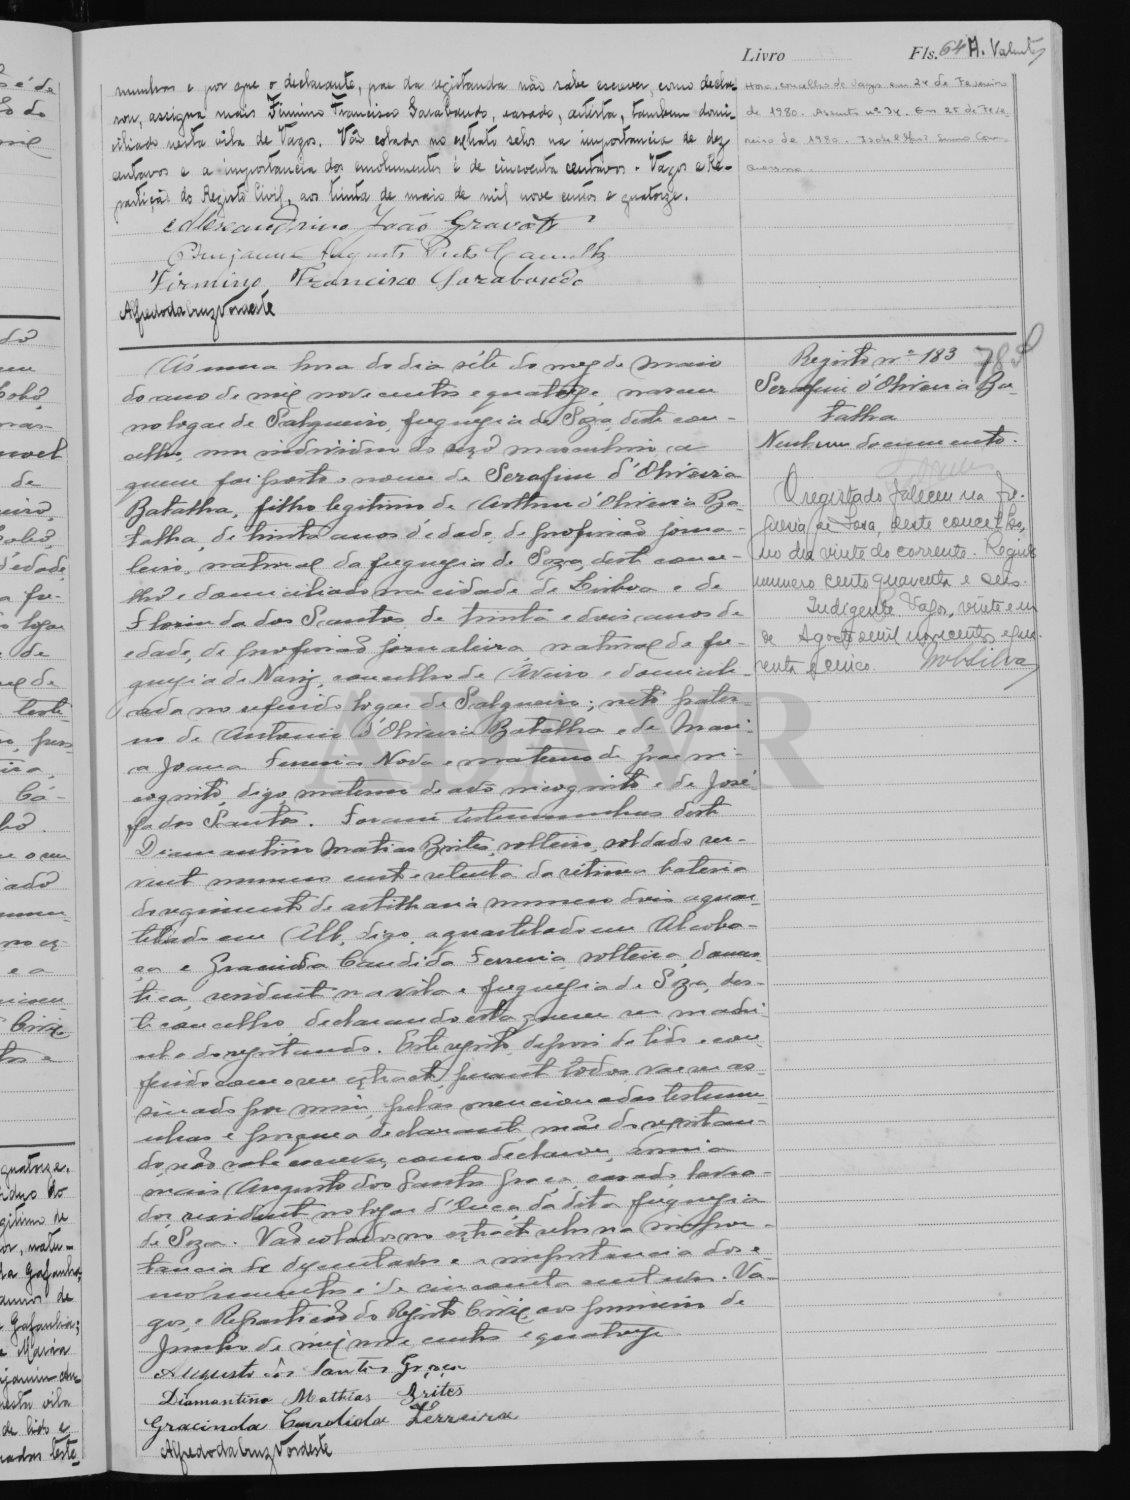 Livro
Fls. 64 A. Valente
munhas e por que o declarante, pae da registanda não sabe escrever, como decla-
rou, assigna mais Firmino Francisco Sarabando, casado, artista, tambem domi-
ciliado nesta vila de Vagos. Vão colados no extrato selos na importancia de dez
centavos e a importancia dos emolumentos é de cincoenta centavos. Vagos e Re-
partição do Registo Civil, aos trinta de maio de mil nove centos e quatorze.
Alexandrino João Gravato
Benjamim Augusto
Firmino Francisco Sarabando
Alfredo da Cruz Nordeste
concelho de Vagos em 24 de Fevereiro
de 1980. Assento nº 34. Em 25 de Feve-
reiro de 1980.
Á uma hora do dia séte do mez de maio
do ano de mil nove centos e quatorze, nasceu
no logar de Salgueiro, freguezia de Soza, deste con-
celho, um individuo do sexo masculino, a
quem foi posto o nome de Serafim d'Oliveira
Batalha, filho legitimo de Arthur d'Oliveira Ba-
talha, de trinta anos d'edade, de profissão jorna-
leiro, natural da freguezia de Soza, deste conce-
lho e domiciliado na cidade de Lisboa e de
Florinda dos Santos, de trinta e dois anos de
edade, de profissão jornaleira, natural da fre-
guezia de Nariz, concelho de Aveiro e domicili-
ada no referido logar de Salgueiro; neto pater-
no de Antonio d'Oliveira Batalha e de Mari-
a Joana Ferreira Nova e materno de pae in-
cognito, digo, materno de avô incognito e de José-
fa dos Santos. Foram testemunhas deste
Diamantino Matias Brites, solteiro, soldado ser-
vente numero cento e setenta da sétima bateria
do regimento de artilharia numero dois aquar-
telado em Alb, digo, aquartelado em Alcoba-
ça e Gracinda Candida Ferreira, solteira, domes-
tica, residente na vila e freguezia de Soza, des-
te concelho, declarando esta querer ser madri-
nha do registando. Este registo, depois de lido e con-
ferido com o seu extracto, perante todos, vae ser as-
sinado por mim, pelas mencionadas testemu-
nhas e porque a declarante, mãe do registan-
do não sabe escrever, como declarou, assina
mais Augusto dos Santos Graça, casado, lavra-
dor, residente no logar d'Ouca, da dita freguezia
de Soza. Vão colados no extracto selos na impor-
tancia de dez centavos e a importancia dos e-
molumentos é de cincoenta centavos. Va-
gos, e Repartição do Registo Civil, aos primeiro de
Junho de mil nove centos e quatorze
Augusto dos Santos Graça
Diamantino Mathias Brites
Gracinda Candida Ferreira
Alfredo da Cruz Nordeste
Registo nº 183
Serafim d'Oliveira Ba-
talha
Nenhum documento.
O registado faleceu na fre-
guesia de Soza, deste concelho,
no dia vinte do corrente. Registo
numero cento quarenta e seis.
Indigente. Vagos, vinte e um
de Agosto de mil novecentos e qua-
renta e cinco.
ADAVR